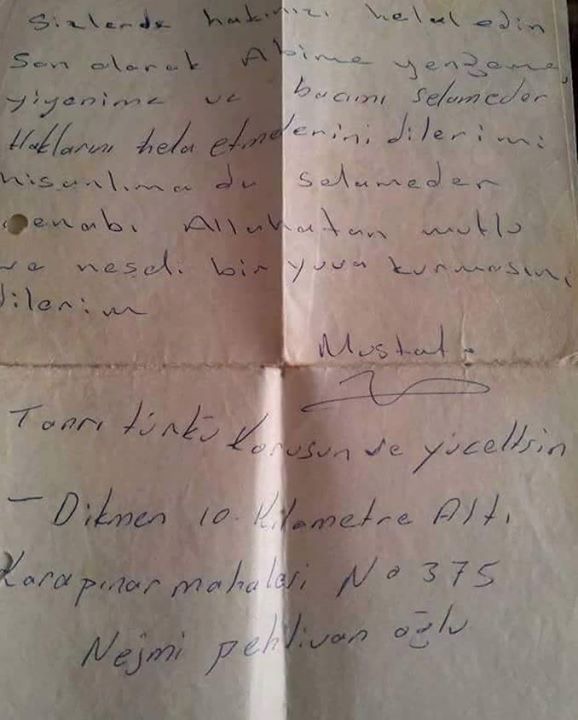 Sizlerde hakınızı helal edin
Son olarak Abime yengeme,
yiyenime ve bacımı selameder
Haklarını hela etmelerini dilerim
nisanlıma da selameder
cenabı Allahatan mutlu
ve neseli bir yuva kurmasını
dilerim
Mustafa
Tanrı türkü Korusun ve yüceltsin
- Dikmen 10. Kilometre Altı
Karapınar mahalesi No 375
Nejmi pehlivan oğlu